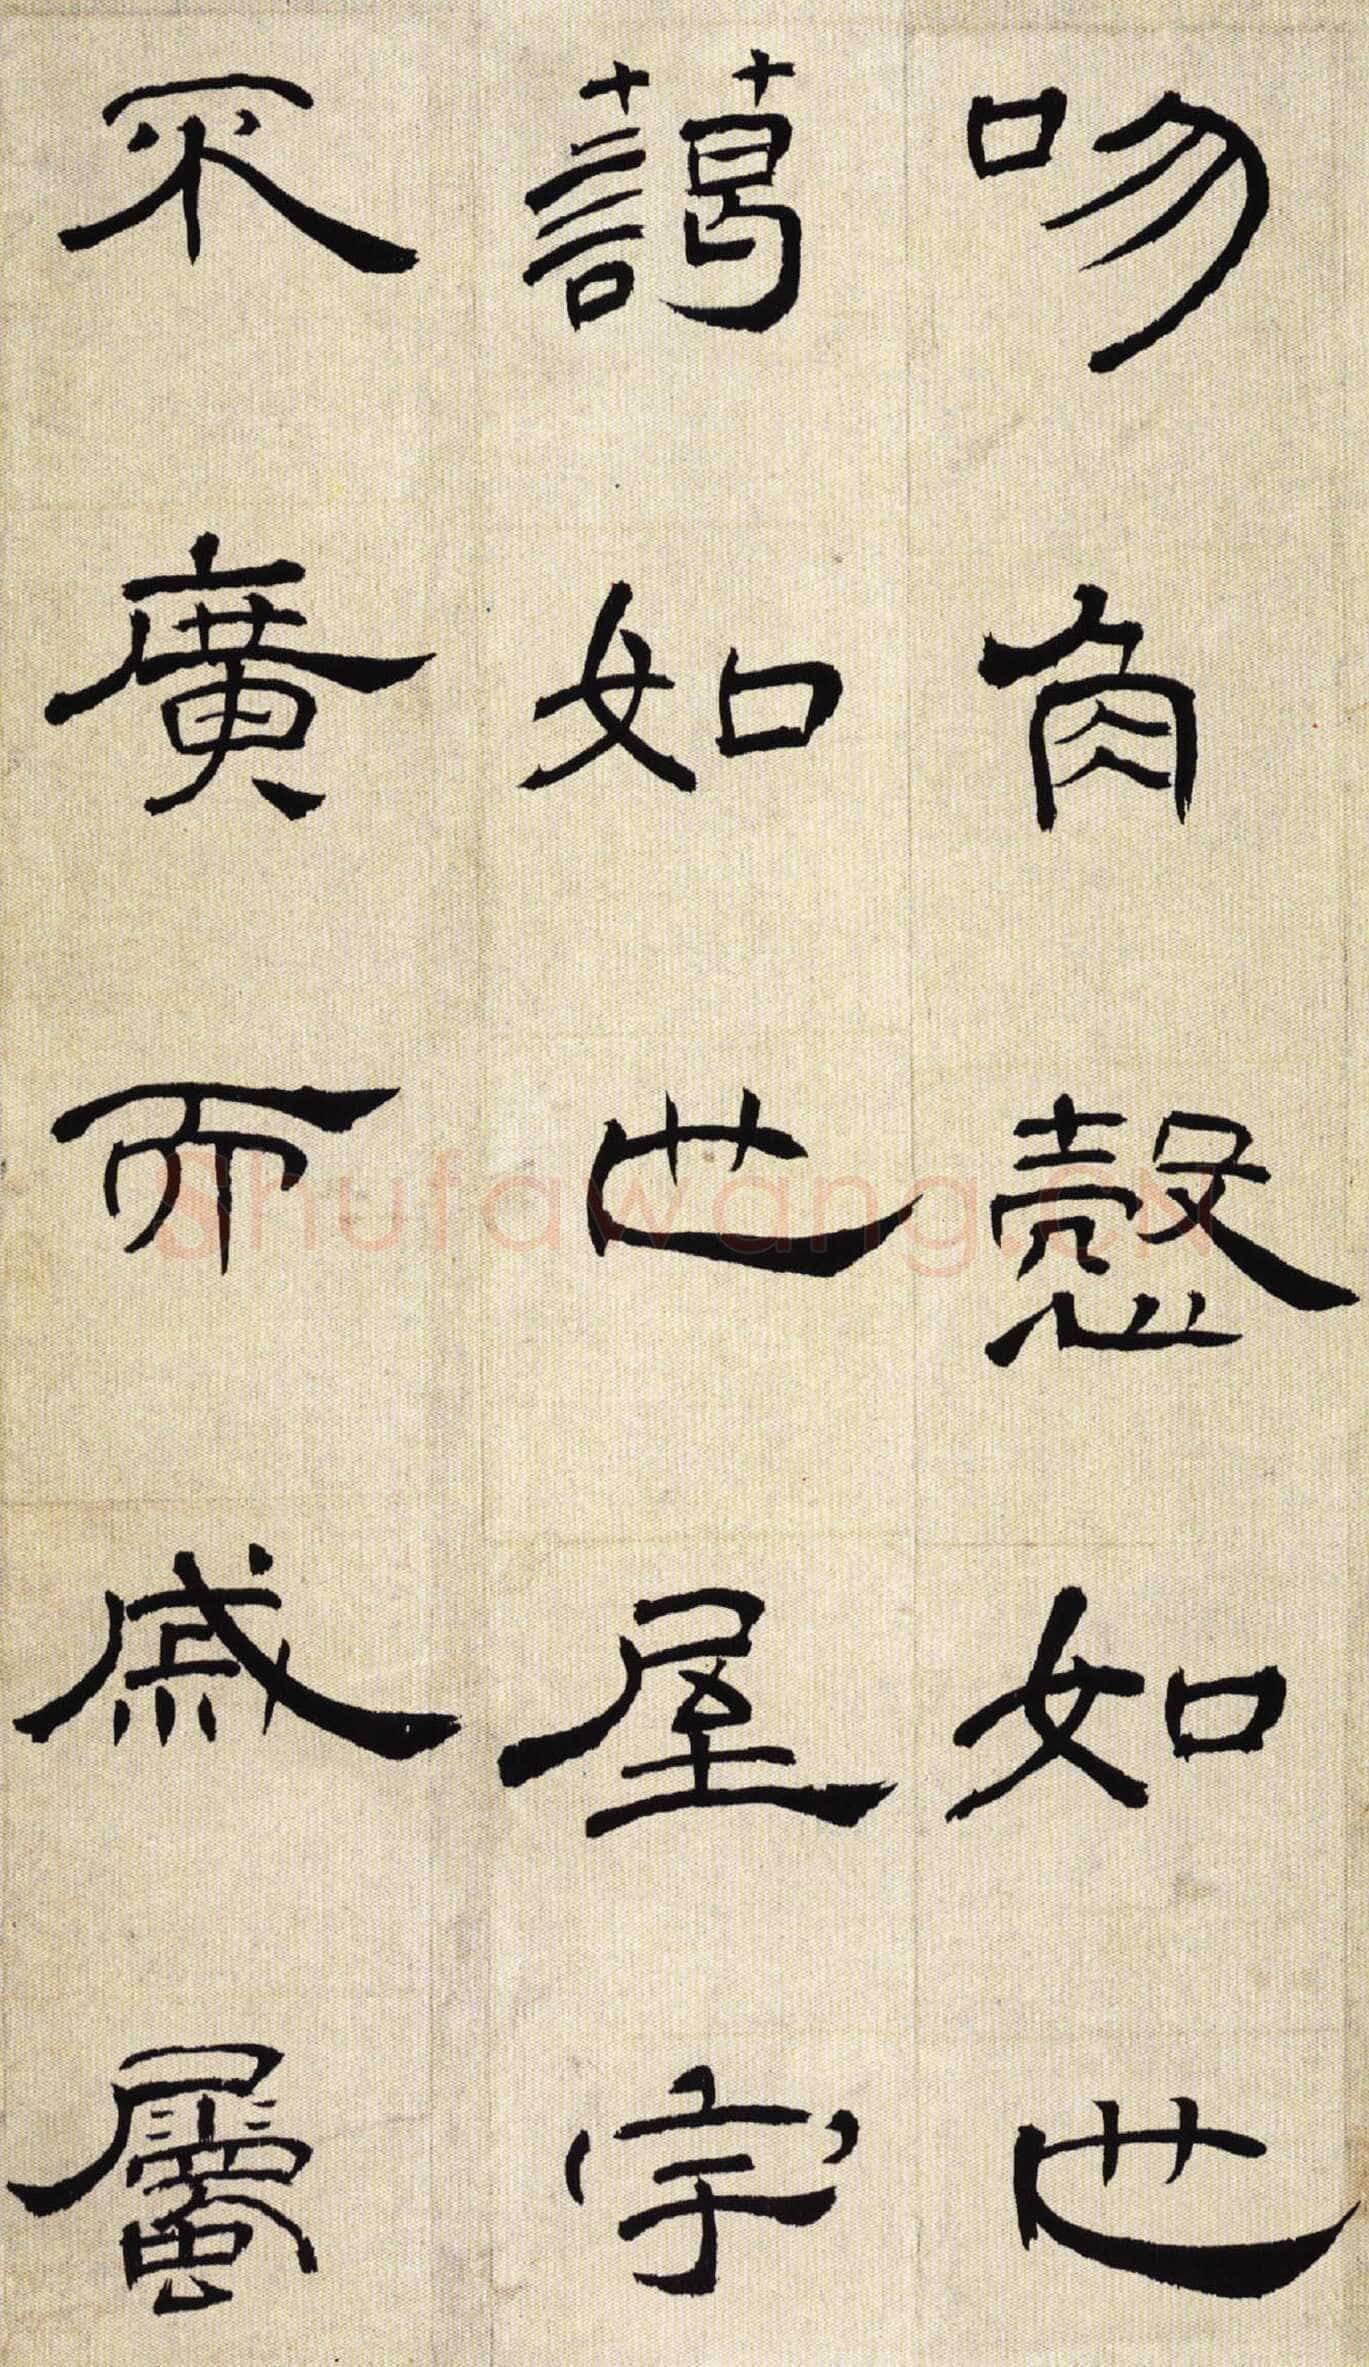 吻角愨如也
藹如也屋宇
不廣而戚屬
Shufawang.CN